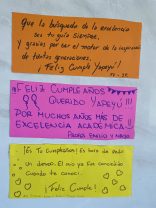 Que la búsqueda de la excelencia
sea tu guía siempre,
y gracias por ser el motor de la inspiración
de tantas generaciones.
¡Feliz Cumple Yapeyú!
¡FELIZ CUMPLEAÑOS
QUERIDO YAPEYÚ!!!
POR MUCHOS AÑOS MÁS DE
EXCELENCIA ACADÉMICA!!
¡Es Tu Cumpleaños! Es hora de pedir
un deseo. El mío ya fue concedido
Cuando te conocí.
¡Feliz Cumple!